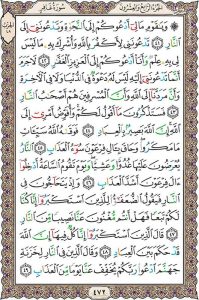 الجزء الرابع والعشرون سورة غافر
۞ وَيَٰقَوْمِ مَا لِىٓ أَدْعُوكُمْ إِلَى ٱلنَّجَوٰةِ وَتَدْعُونَنِىٓ إِلَى
ٱلنَّارِ ٤١ تَدْعُونَنِى لِأَكْفُرَ بِٱللَّهِ وَأُشْرِكَ بِهِۦ مَا لَيْسَ
لِى بِهِۦ عِلْمٌ وَأَنَا۠ أَدْعُوكُمْ إِلَى ٱلْعَزِيزِ ٱلْغَفَّٰرِ ٤٢ لَا جَرَمَ
أَنَّمَا تَدْعُونَنِىٓ إِلَيْهِ لَيْسَ لَهُۥ دَعْوَةٌ فِى ٱلدُّنْيَا وَلَا فِى ٱلْءَاخِرَةِ
وَأَنَّ مَرَدَّنَآ إِلَى ٱللَّهِ وَأَنَّ ٱلْمُسْرِفِينَ هُمْ أَصْحَٰبُ ٱلنَّارِ
٤٣ فَسَتَذْكُرُونَ مَآ أَقُولُ لَكُمْ وَأُفَوِّضُ أَمْرِىٓ إِلَى
ٱللَّهِ إِنَّ ٱللَّهَ بَصِيرٌۢ بِٱلْعِبَادِ ٤٤ فَوَقَىٰهُ ٱللَّهُ سَيِّـَٔاتِ
مَا مَكَرُوا۟ وَحَاقَ بِـَٔالِ فِرْعَوْنَ سُوٓءُ ٱلْعَذَابِ ٤٥ ٱلنَّارُ
يُعْرَضُونَ عَلَيْهَا غُدُوًّا وَعَشِيًّا وَيَوْمَ تَقُومُ ٱلسَّاعَةُ أَدْخِلُوٓا۟
ءَالَ فِرْعَوْنَ أَشَدَّ ٱلْعَذَابِ ٤٦ وَإِذْ يَتَحَآجُّونَ فِى
ٱلنَّارِ فَيَقُولُ ٱلضُّعَفَٰٓؤُا۟ لِلَّذِينَ ٱسْتَكْبَرُوٓا۟ إِنَّا كُنَّا
لَكُمْ تَبَعًا فَهَلْ أَنتُم مُّغْنُونَ عَنَّا نَصِيبًا مِّنَ ٱلنَّارِ
٤٧ قَالَ ٱلَّذِينَ ٱسْتَكْبَرُوٓا۟ إِنَّا كُلٌّ فِيهَآ إِنَّ ٱللَّهَ
قَدْ حَكَمَ بَيْنَ ٱلْعِبَادِ ٤٨ وَقَالَ ٱلَّذِينَ فِى ٱلنَّارِ لِخَزَنَةِ
جَهَنَّمَ ٱدْعُوا۟ رَبَّكُمْ يُخَفِّفْ عَنَّا يَوْمًا مِّنَ ٱلْعَذَابِ ٤٩
٤٧٢